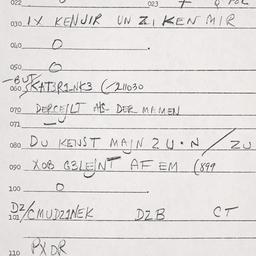 022 023 7
030 IX KENJIR UN Z, KEN MIR
040 O
050 O
-BUT/
060 KATSR1NK3 (-211030
070 DERCEILT AB- DER MEMEN
071 -
080 DU KENST MAJN ZU·N / ZU
090 XOB G3LEJNT AF EM (899
100 O
DZ/
101 CMUDZ1NEK DZB CT
110 PXDR